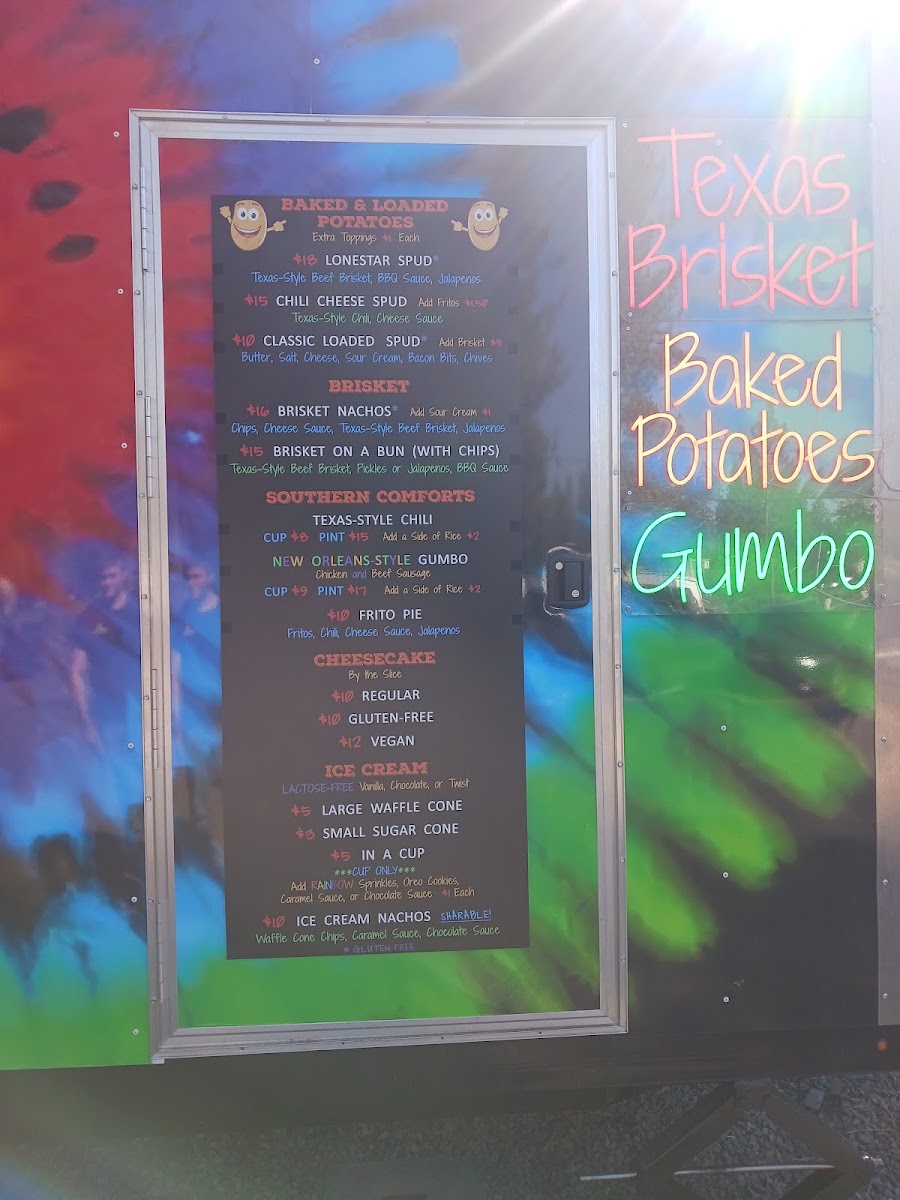 BAKED & LOADED
POTATOES
Extra Toppings $1 Each
$18 LONESTAR SPUD*
Texas-Style Beef Brisket, BBQ Sauce, Jalapenos
$15 CHILI CHEESE SPUD Add Fritos $1.50
Texas-Style Chili, Cheese Sauce
$10 CLASSIC LOADED SPUD* Add Brisket $9
Butter, Salt, Cheese, Sour Cream, Bacon Bits, Chives
BRISKET
$16 BRISKET NACHOS* Add Sour Cream $1
Chips, Cheese Sauce, Texas-Style Beef Brisket, Jalapenos
$15 BRISKET ON A BUN (WITH CHIPS)
Texas-Style Beef Brisket, Pickles or Jalapenos, BBQ Sauce
SOUTHERN COMFORTS
TEXAS-STYLE CHILI
CUP $8 PINT $15 Add a Side of Rice $2
NEW ORLEANS-STYLE GUMBO
Chicken and Beef Sausage
CUP $9 PINT $17 Add a Side of Rice $2
$10 FRITO PIE
Fritos, Chili, Cheese Sauce, Jalapenos
CHEESECAKE
By the Slice
$10 REGULAR
$10 GLUTEN-FREE
$12 VEGAN
ICE CREAM
LACTOSE-FREE Vanilla, Chocolate, or Twist
$5 LARGE WAFFLE CONE
$3 SMALL SUGAR CONE
$5 IN A CUP
***CUP ONLY***
Add RAINBOW Sprinkles, Oreo Cookies,
Caramel Sauce, or Chocolate Sauce $1 Each
$10 ICE CREAM NACHOS SHARABLE!
Waffle Cone Chips, Caramel Sauce, Chocolate Sauce
* GLUTEN-FREE
Texas
Brisket
Baked
Potatoes
Gumbo